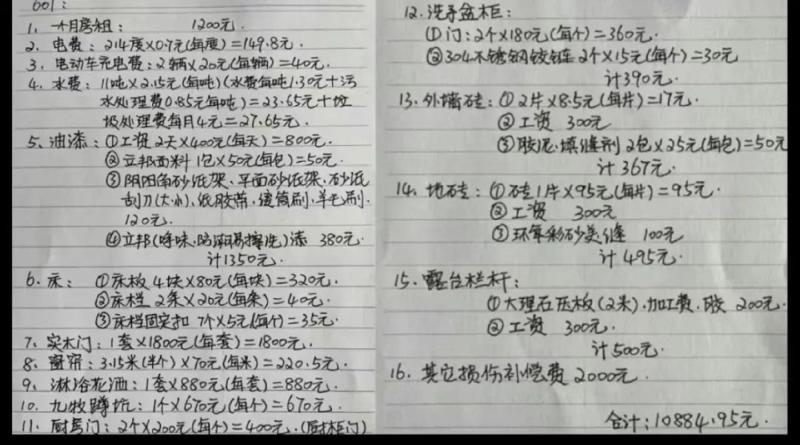 601:
1. 一个月房租: 1200元.
2. 电费: 214度×0.7元(每度)=149.8元.
3. 电动车充电费: 2辆×20元(每辆)=40元.
4. 水费: 11吨×2.15元(每吨)(水费每吨1.30元+污
水处理费0.85元每吨)=23.65元+垃
圾处理费每月4元=27.65元.
5. 油漆: ①工资 2天×400元(每天)=800元.
②立邦面料 1包×50元(每包)=50元.
③阴阳角砂纸架、平面砂纸架、砂纸
刮刀(大小)、纸胶带、滚筒刷、羊毛刷.
120元.
④立邦(净味、防霉易擦洗)漆 380元.
计1350元.
6. 床: ①床板 4块×80元(每块)=320元.
②床档 2条×20元(每条)=40元.
③床档固定扣 7个×5元(每个)=35元.
7. 实木门: 1套×1800元(每套)=1800元.
8. 窗帘: 3.15米(半个)×70元(每米)=220.5元.
9. 淋浴花洒: 1套×880元(每套)=880元.
10. 九牧蹲坑: 1个×670元(每个)=670元.
11. 厨房门: 2个×200元(每个)=400元.(厨柜门)
12. 洗手盆柜:
①门: 2个×180元(每个)=360元.
②304不锈钢铰链 2个×15元(每个)=30元
计390元.
13. 外墙砖: ①2片×8.5元(每片)=17元.
②工资 300元
③胶泥、填缝剂 2包×25元(每包)=50元
计367元.
14. 地砖: ①砖1片×95元(每片)=95元.
②工资 300元
③环氧彩砂美缝 100元
计495元.
15. 露台栏杆:
①大理石压板(2米).加工费.胶 200元.
②工资 300元.
计500元.
16. 其它损伤补偿费 2000元.
合计: 10884.95元.